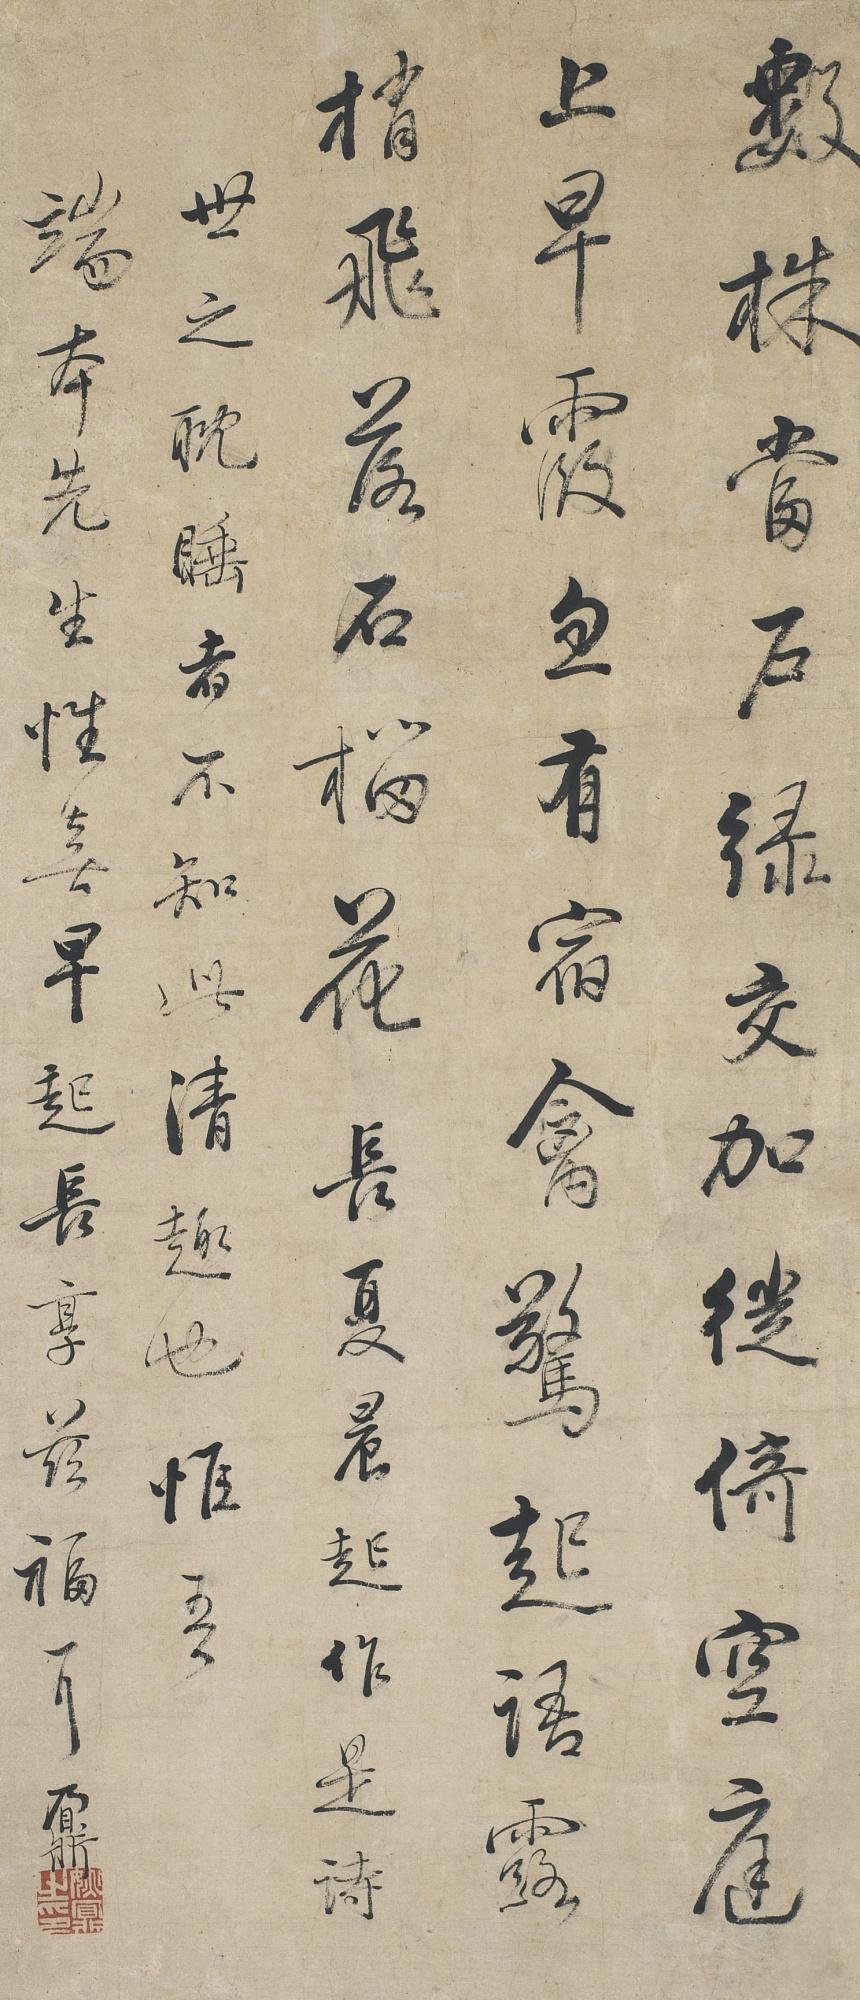 數株當戶綠交加徙倚空庭
上早霞忽有宿禽驚起語露
梢飛落石榴花長夏晨起作是詩
世之耽睡者不知此清趣也惟吾
端本先生性喜早起長享茲福耳鼐